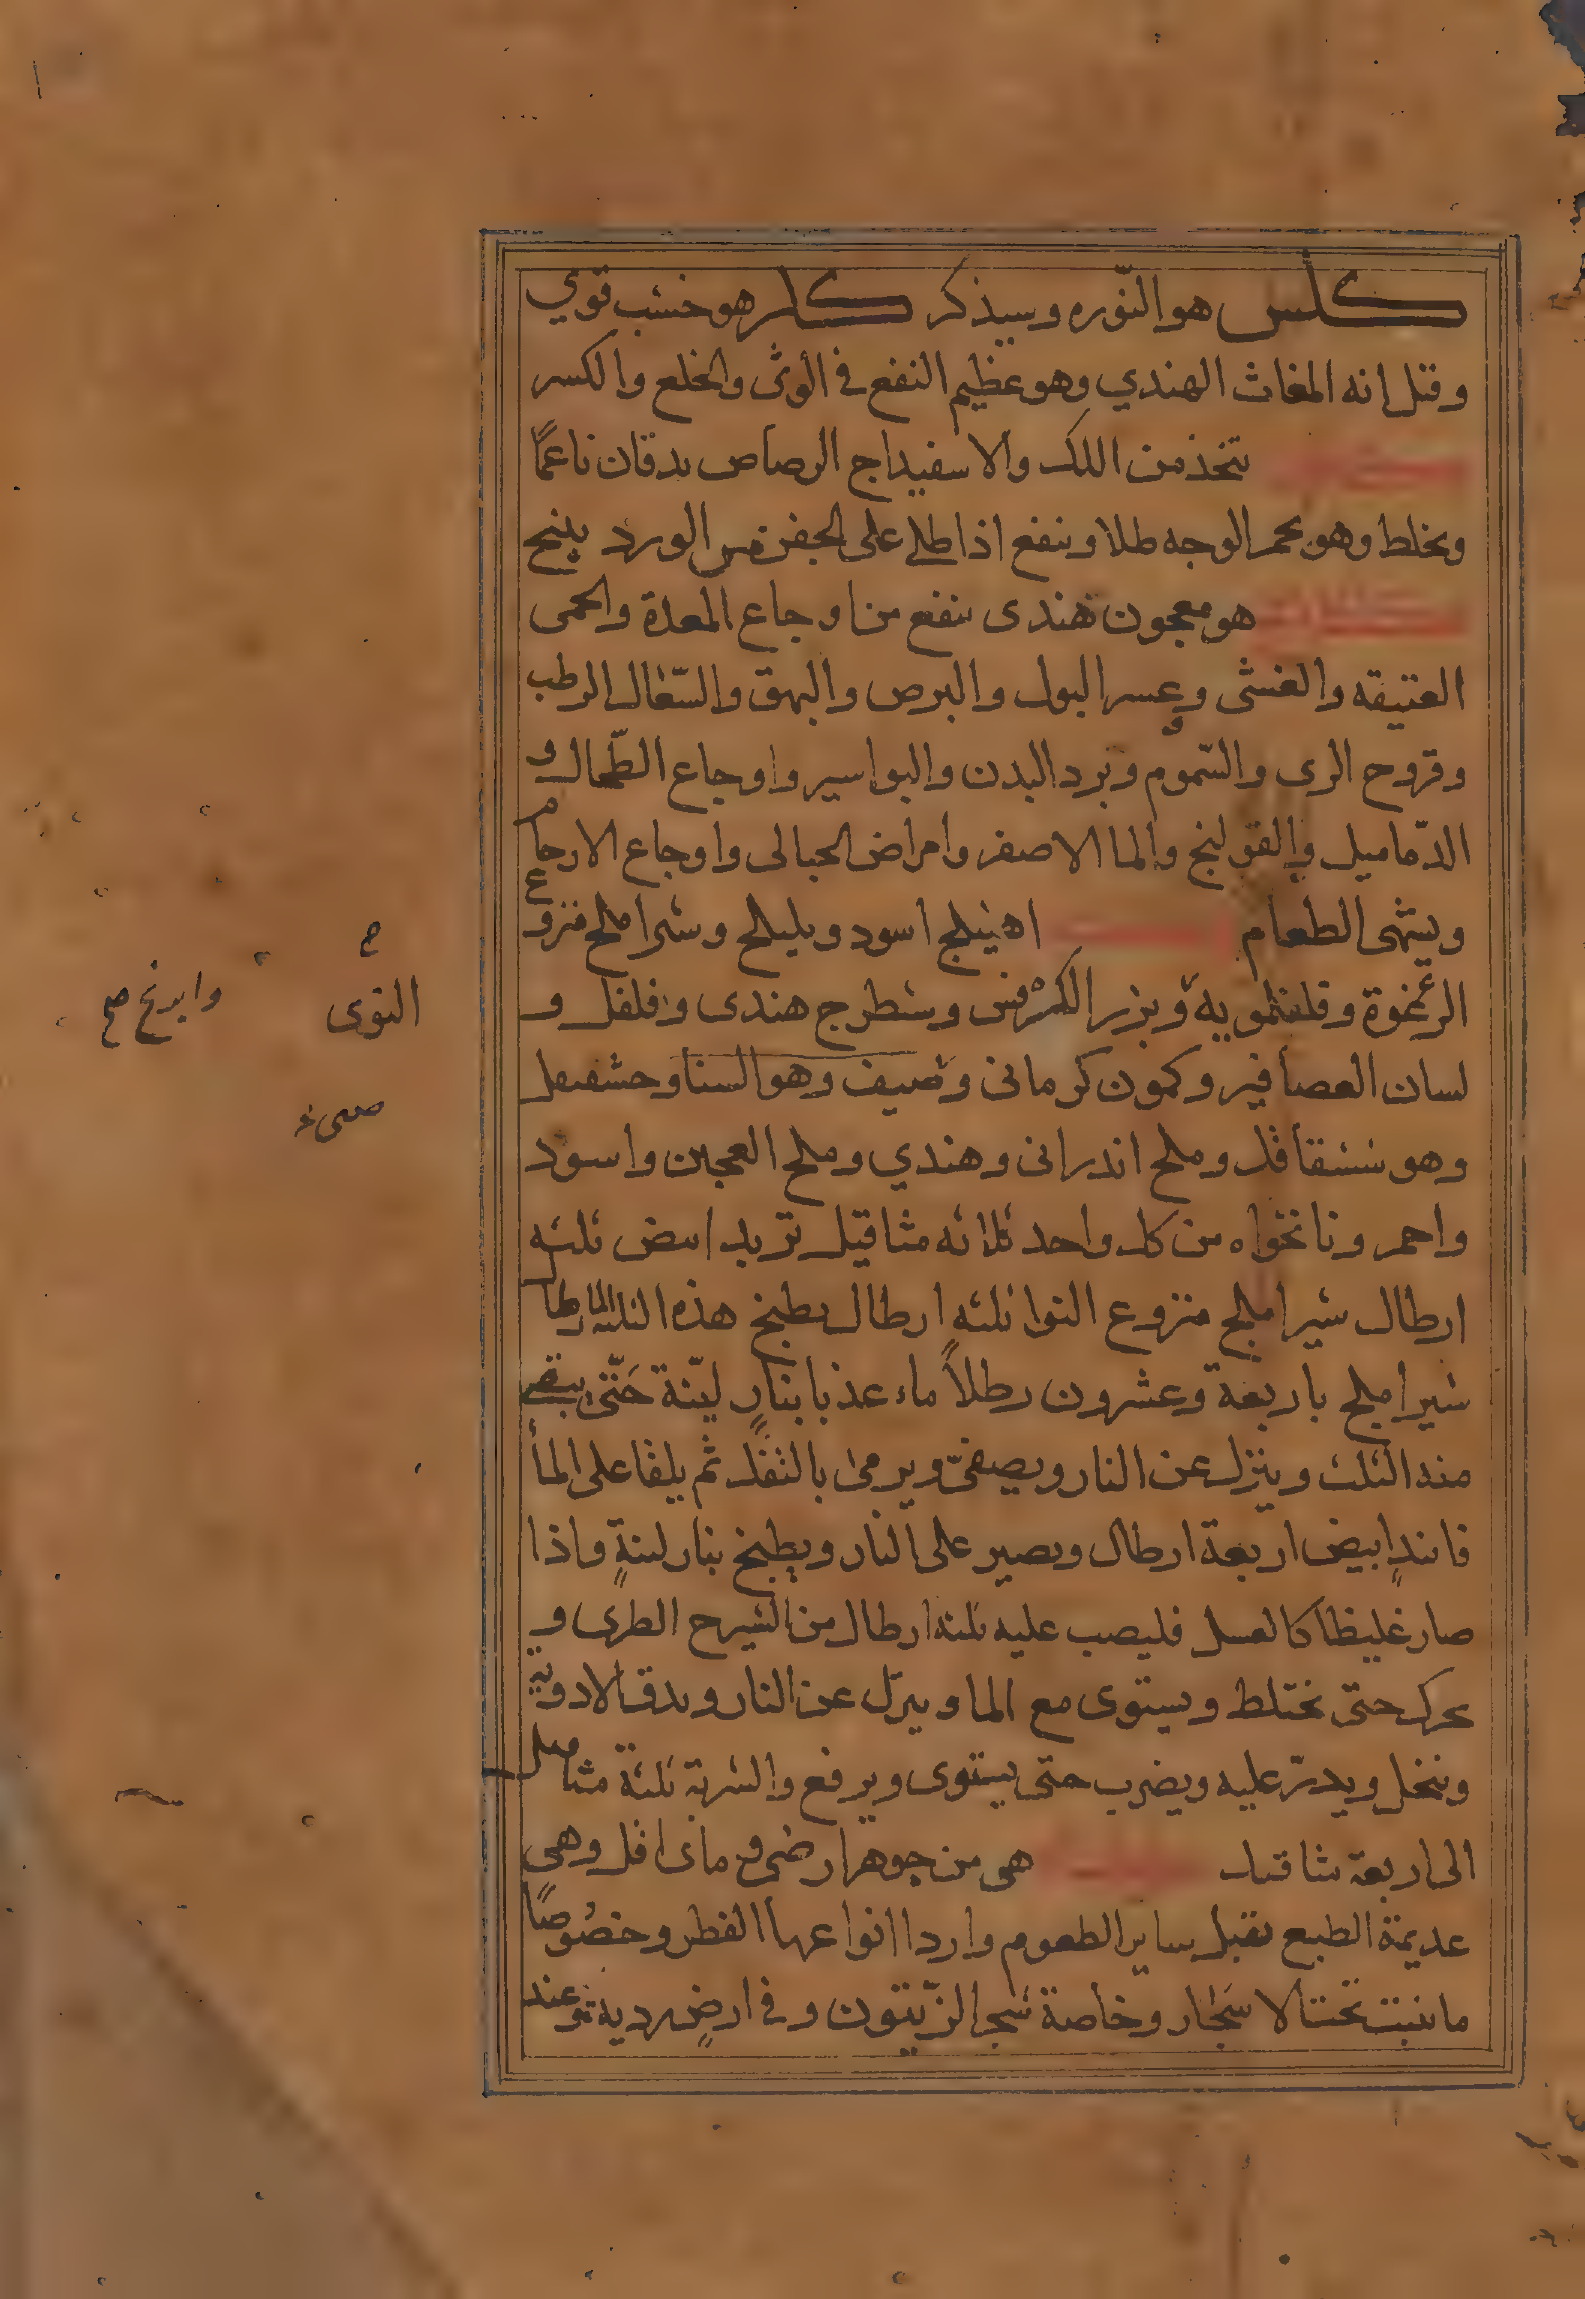 كلس هو النّوره وسيذكر كلز هو خشب قوي
وقيل انه المغاث الهندي وهو عظيم النفع في الوثى والخلع والكسر
يتخذ من اللك والاسفيداج الرصاص يدقان ناعمًا
ويخلط وهو يحمر الوجه طلا وينفع اذا طلي على الجفن من الورد ينبح
هو معجون هندى ينفع من اوجاع المعدة والحمى
العتيقه والغشى وعسر البول والبرص والبهق والسّعال الرطب
وقروح الرى والسّموم وبرد البدن والبواسير واوجاع الطّحال و
الدّماميل والقولنج والما الاصفر وامراض الحبالى واوجاع الارحام
ويشهى الطعام اهليلج اسود وبليلج وشيراملج منزوع
الرغوة وفلفلمويه وبزر الكرفس وشطرج هندى وفلفل و
لسان العصافير وكمون كرمانى وضيف وهو السنا وحشفيفل
وهو شقاقل وملح اندرانى وهندي وملح العجين واسود
واحمر ونانخواه من كل واحد ثلاثه مثاقيل تربد ابيض ثلثه
ارطال شيراملج منزوع النوا ثلثه ارطال يطبخ هذه الثلثة ارطال
شيراملج باربعة وعشرون رطلاً ماء عذبا بنارٍ ليّنة حَتّى يبقى
منه الثلث وينزل عن النار ويصفىّ ويرمى بالثفل ثم يلقا على المأ
فانيدٍ ابيض اربعة ارطال ويصير على النار ويطبخ بنار لينةٍ واذا
صار غليظا كالعسل فليصب عليه ثلثه ارطال من الشيرح الطرى و
يحرك حتى يختلط ويستوى مع الما وينزل عن النار ويدق الادوية
وينخل ويدرّ عليه ويضرب حتى يستوى ويرفع والشربة ثلثة مثاقيل
الى اربعة مثاقيل هى من جوهر ارضى ومائى اقل وهى
عديمة الطبع تقبل ساير الطعوم واردا انواعها الفطر وخصُوصًا
ما ينبت تحت الاشجار وخاصة شجر الزّيتون وفى ارضٍ رديه وعند
ح
النوى
وابرنج صح